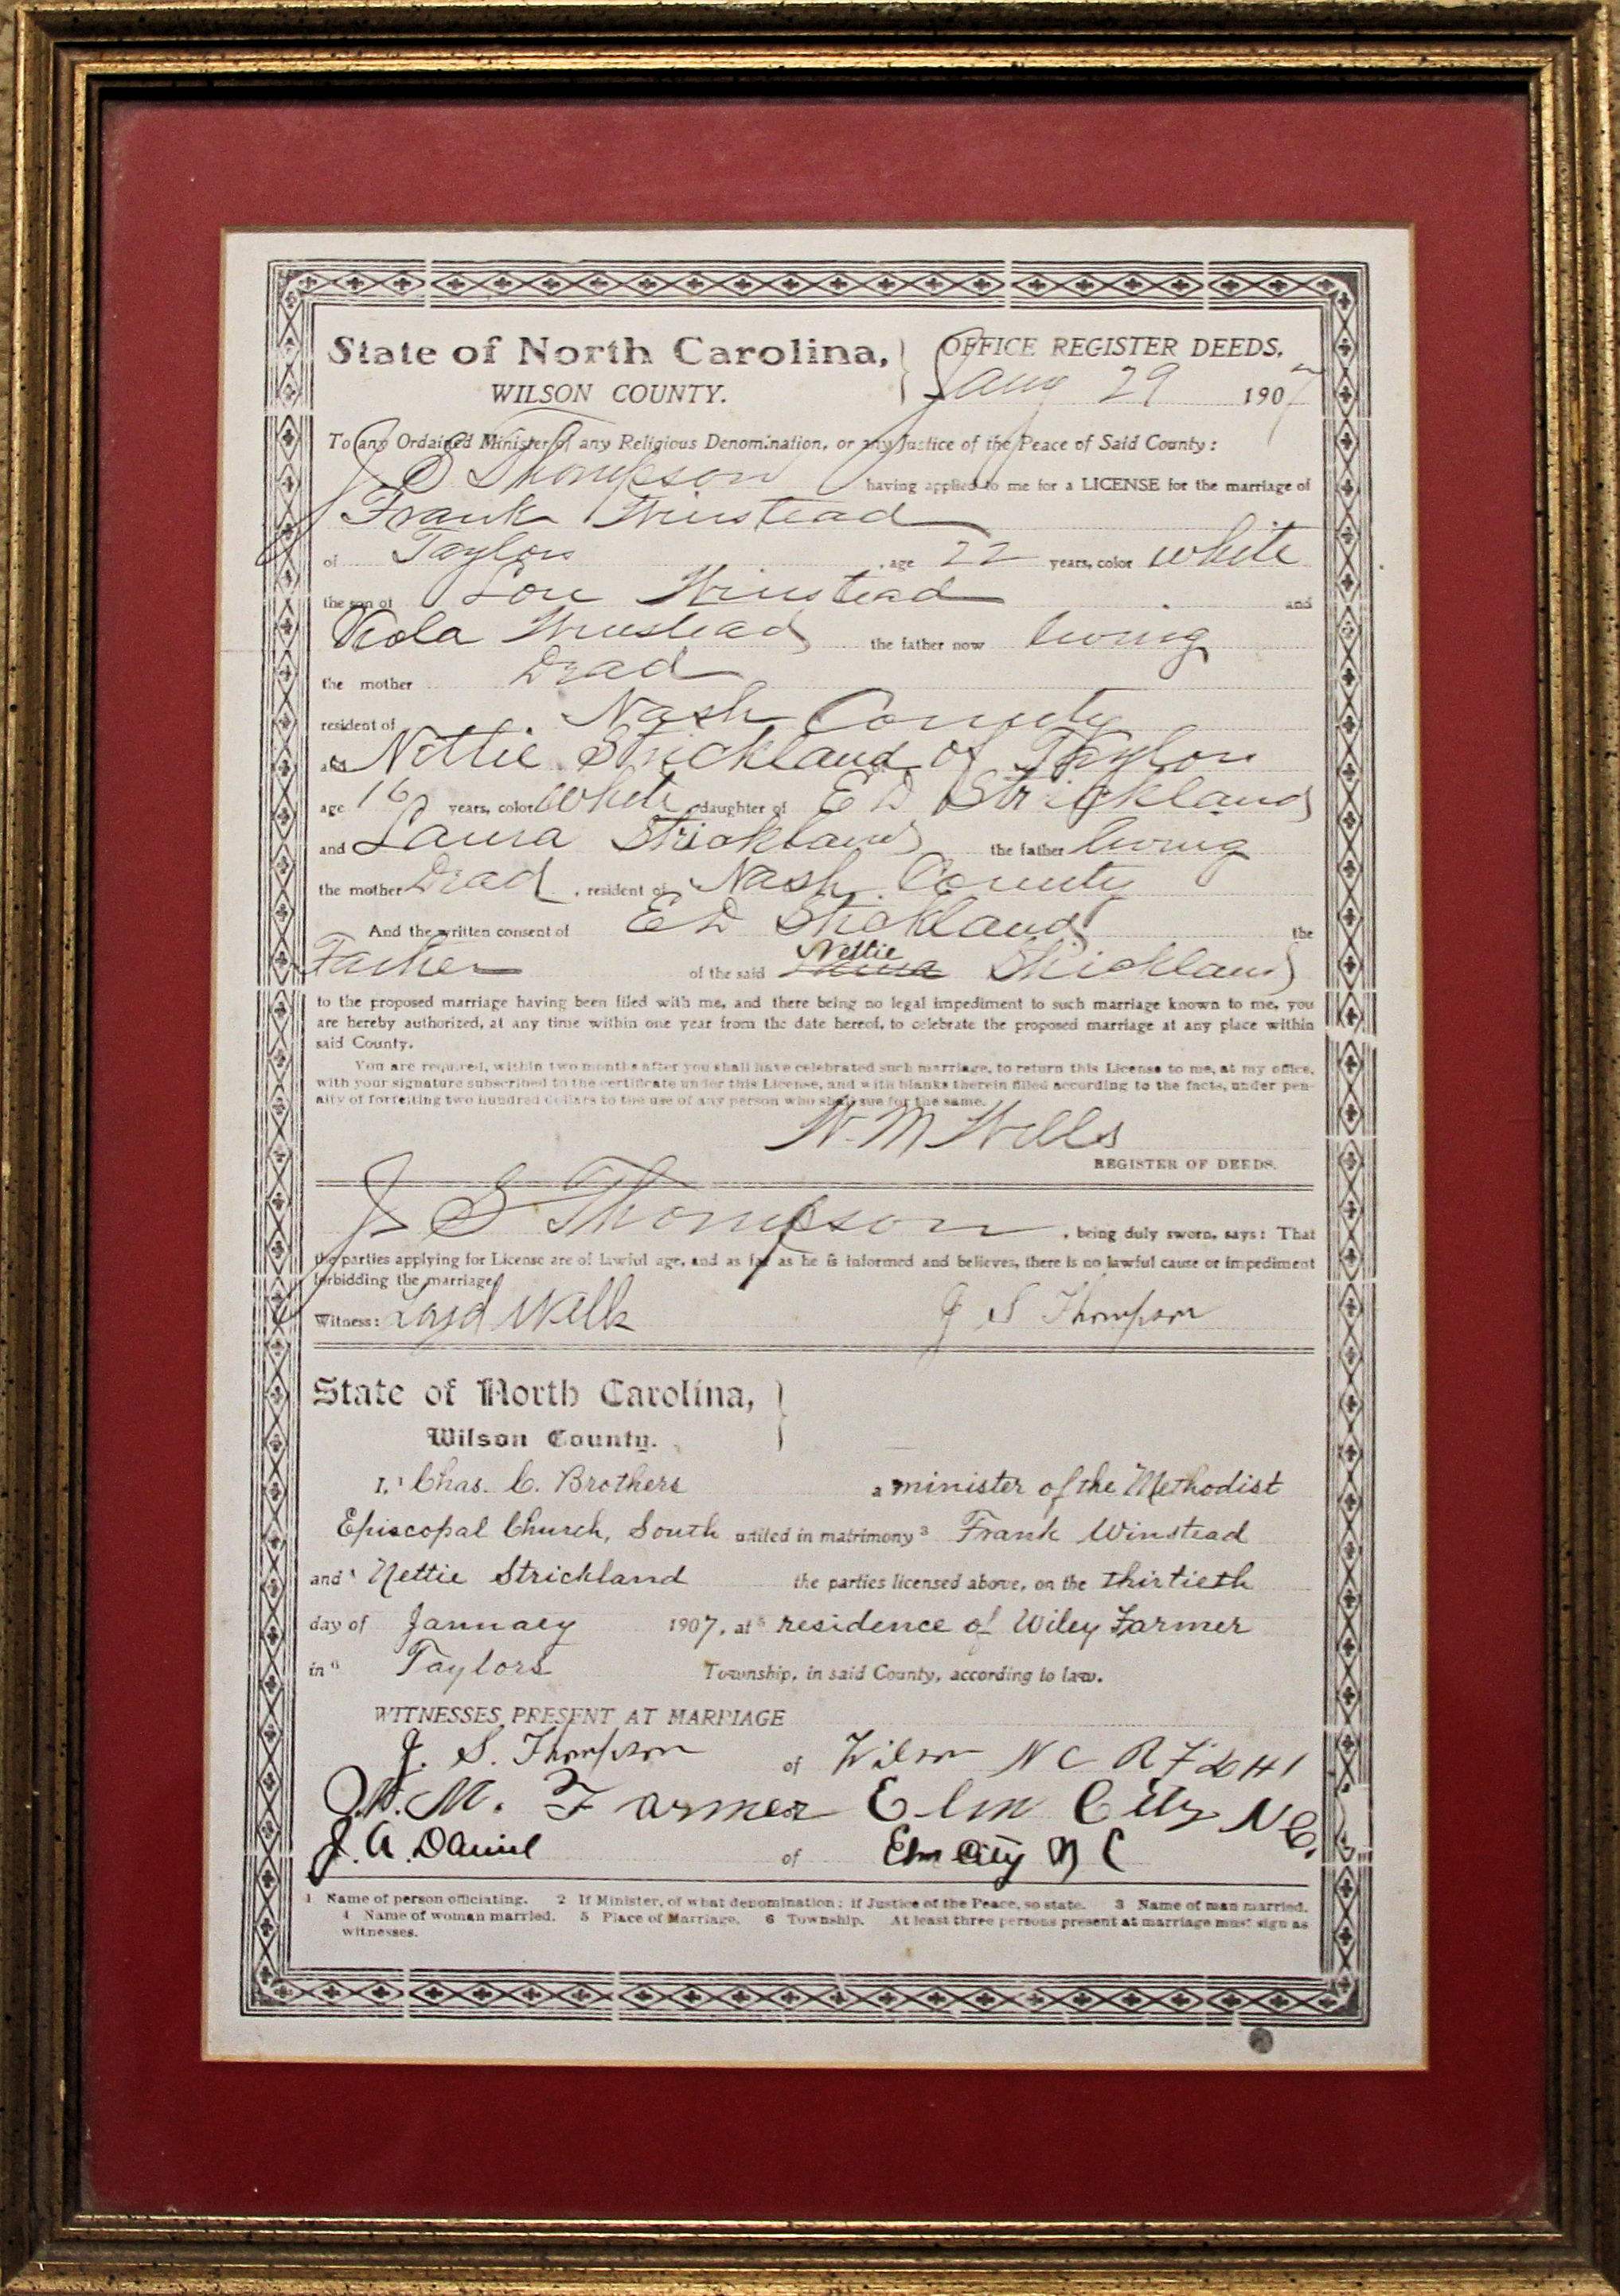 State of North Carolina, OFFICE REGISTER DEEDS,
WILSON COUNTY. Jany 29 1907
To any Ordained Minister of any Religious Denomination, or any Justice of the Peace of Said County:
J S Thompson having applied to me for a LICENSE for the marriage of
Frank Winstead
of Taylors , age 22 years, color White
the son of Lon Winstead and
Viola Winstead the father now living
the mother Dead
resident of Nash County
and Nettie Strickland of Taylors
age 16 years, color White daughter of E D Strickland
and Laura Strickland the father living
the mother Dead , resident of Nash County
And the written consent of E D Strickland the
Father of the said Nettie Strickland
to the proposed marriage having been filed with me, and there being no legal impediment to such marriage known to me, you
are hereby authorized, at any time within one year from the date hereof, to celebrate the proposed marriage at any place within
said County.
You are required, within two months after you shall have celebrated such marriage, to return this License to me, at my office,
with your signature subscribed to the certificate under this License, and with blanks therein filled according to the facts, under pen-
alty of forfeiting two hundred dollars to the use of any person who shall sue for the same.
W. M Wells
REGISTER OF DEEDS.
J S Thompson , being duly sworn, says: That
the parties applying for License are of lawful age, and as far as he is informed and believes, there is no lawful cause or impediment
forbidding the marriage
Witness: Wells J S Thompson
State of North Carolina,
Wilson County.
I, 1 Chas. C. Brothers a minister of the Methodist
Episcopal Church, South united in matrimony 3 Frank Winstead
and 4 Nettie Strickland the parties licensed above, on the thirtieth
day of January 1907, at 5 residence of Wiley Farmer
in 6 Taylors Township, in said County, according to law.
WITNESSES PRESENT AT MARRIAGE
J. S. Thompson of Wilson N C R F D # 1
J. W. M. Farmer Elm City N C.
J. A. Daniel of Elm City N C
1 Name of person officiating. 2 If Minister, of what denomination; if Justice of the Peace, so state. 3 Name of man married.
4 Name of woman married. 5 Place of Marriage. 6 Township. At least three persons present at marriage must sign as
witnesses.